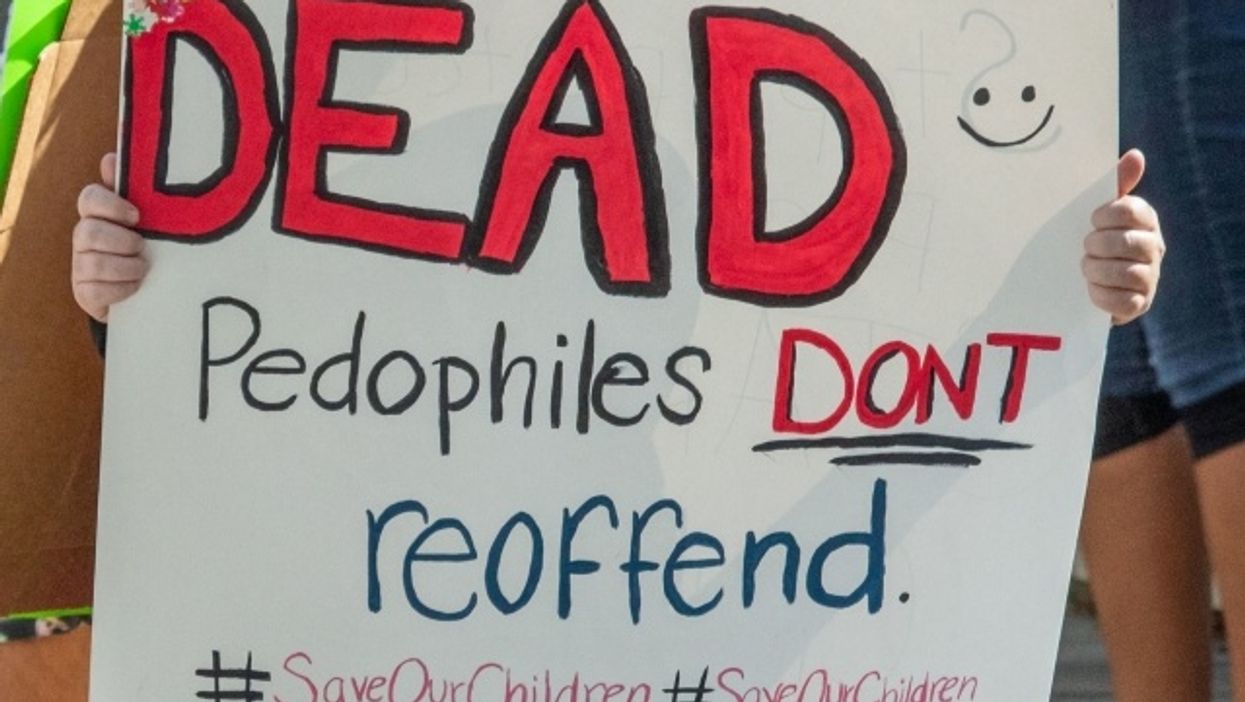 DEAD
Pedophiles DONT
reoffend.
#SaveOurChildren #SaveOurChildren